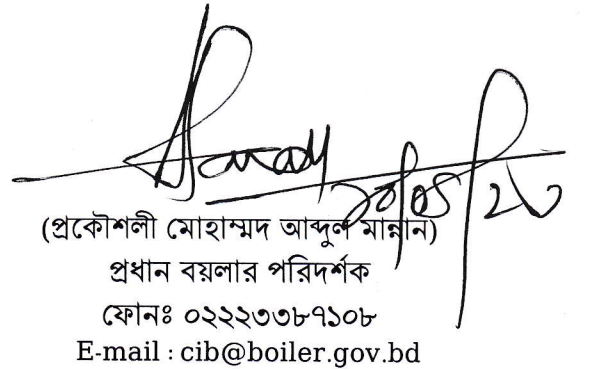 (প্রকৌশলী মোহাম্মদ আব্দুল মান্নান)
প্রধান বয়লার পরিদর্শক
ফোনঃ ০২২২৩৩৮৭১০৮
E-mail : cib@boiler.gov.bd